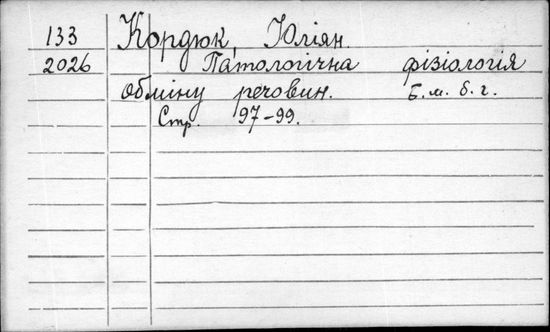 133 Кордюк, Юліян.
2026 Патологічна фізіологія
обміну речовин. Б. м. б. г.
Стр. 97-99.